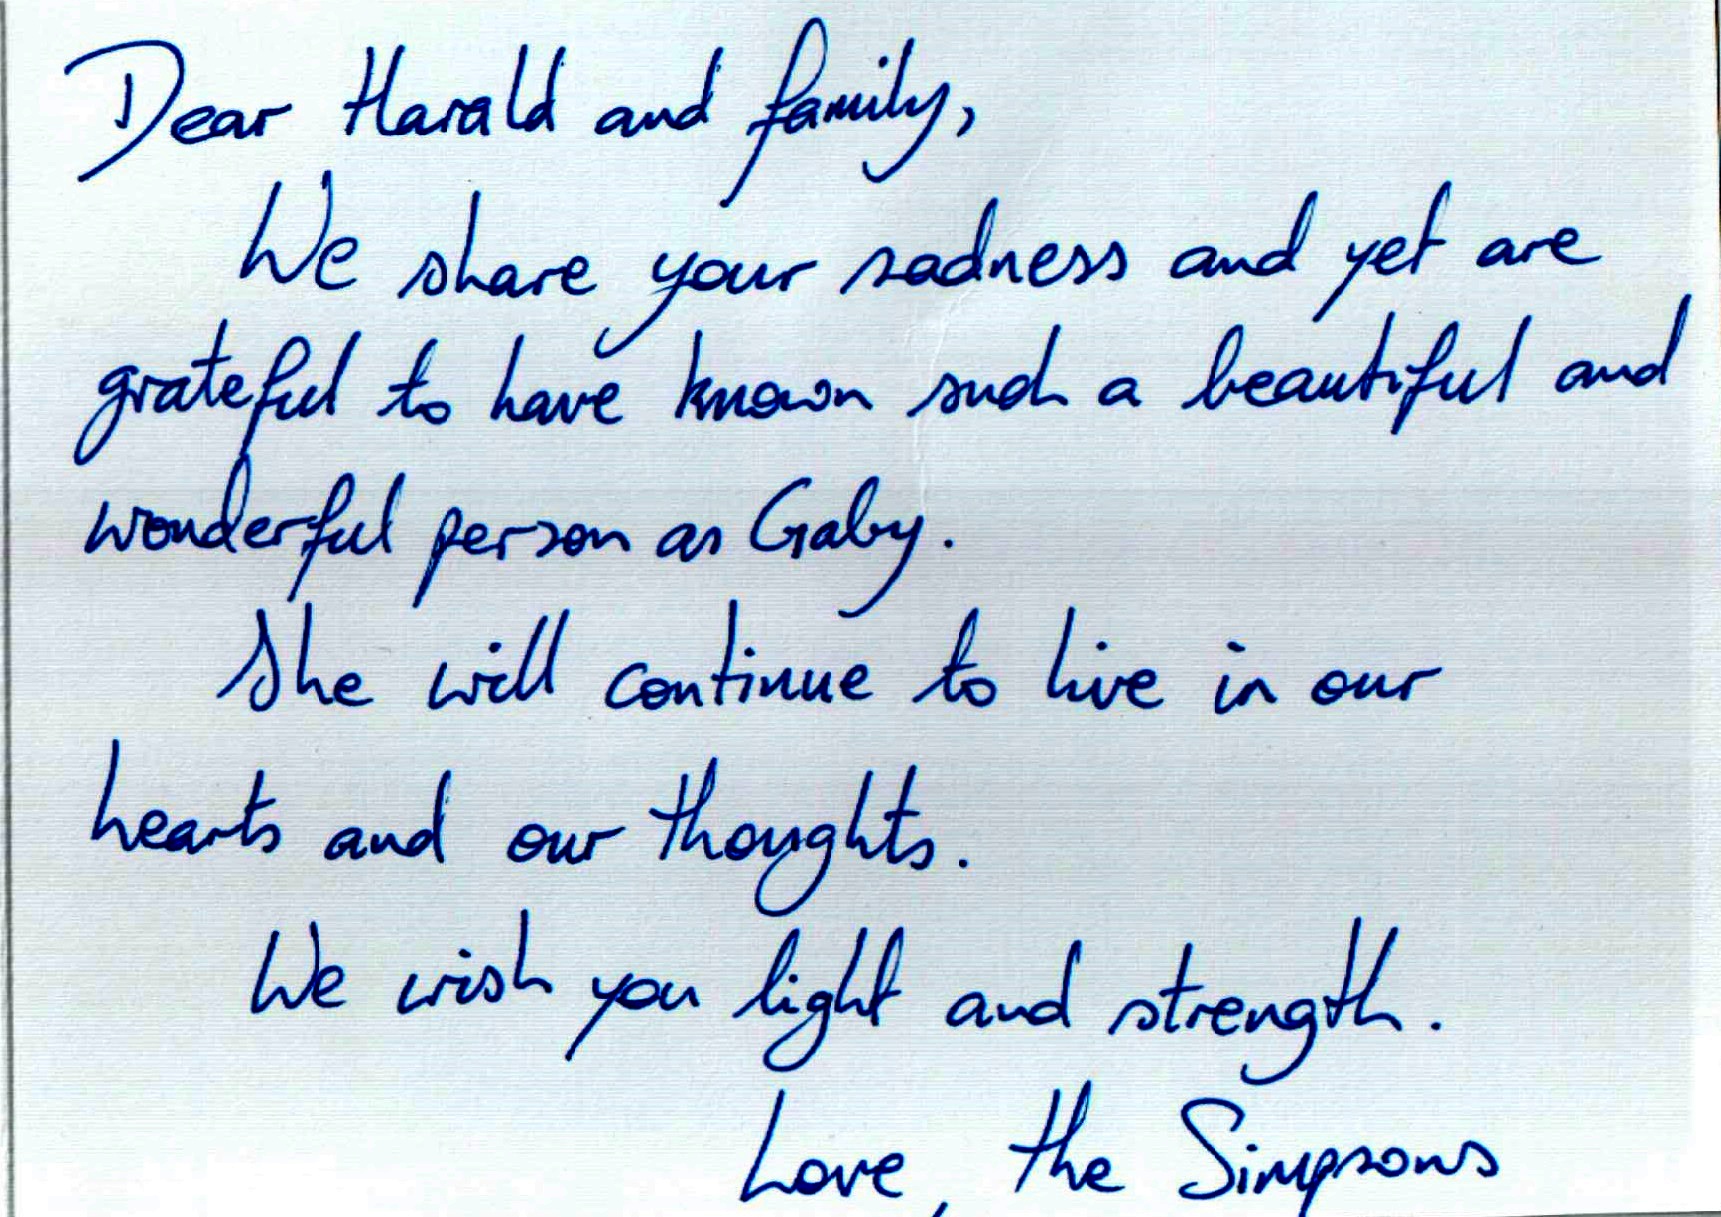 Dear Harald and family,
We share your sadness and yet are
grateful to have known such a beautiful and
wonderful person as Gaby.
She will continue to live in our
hearts and our thoughts.
We wish you light and strength.
Love, the Simpsons